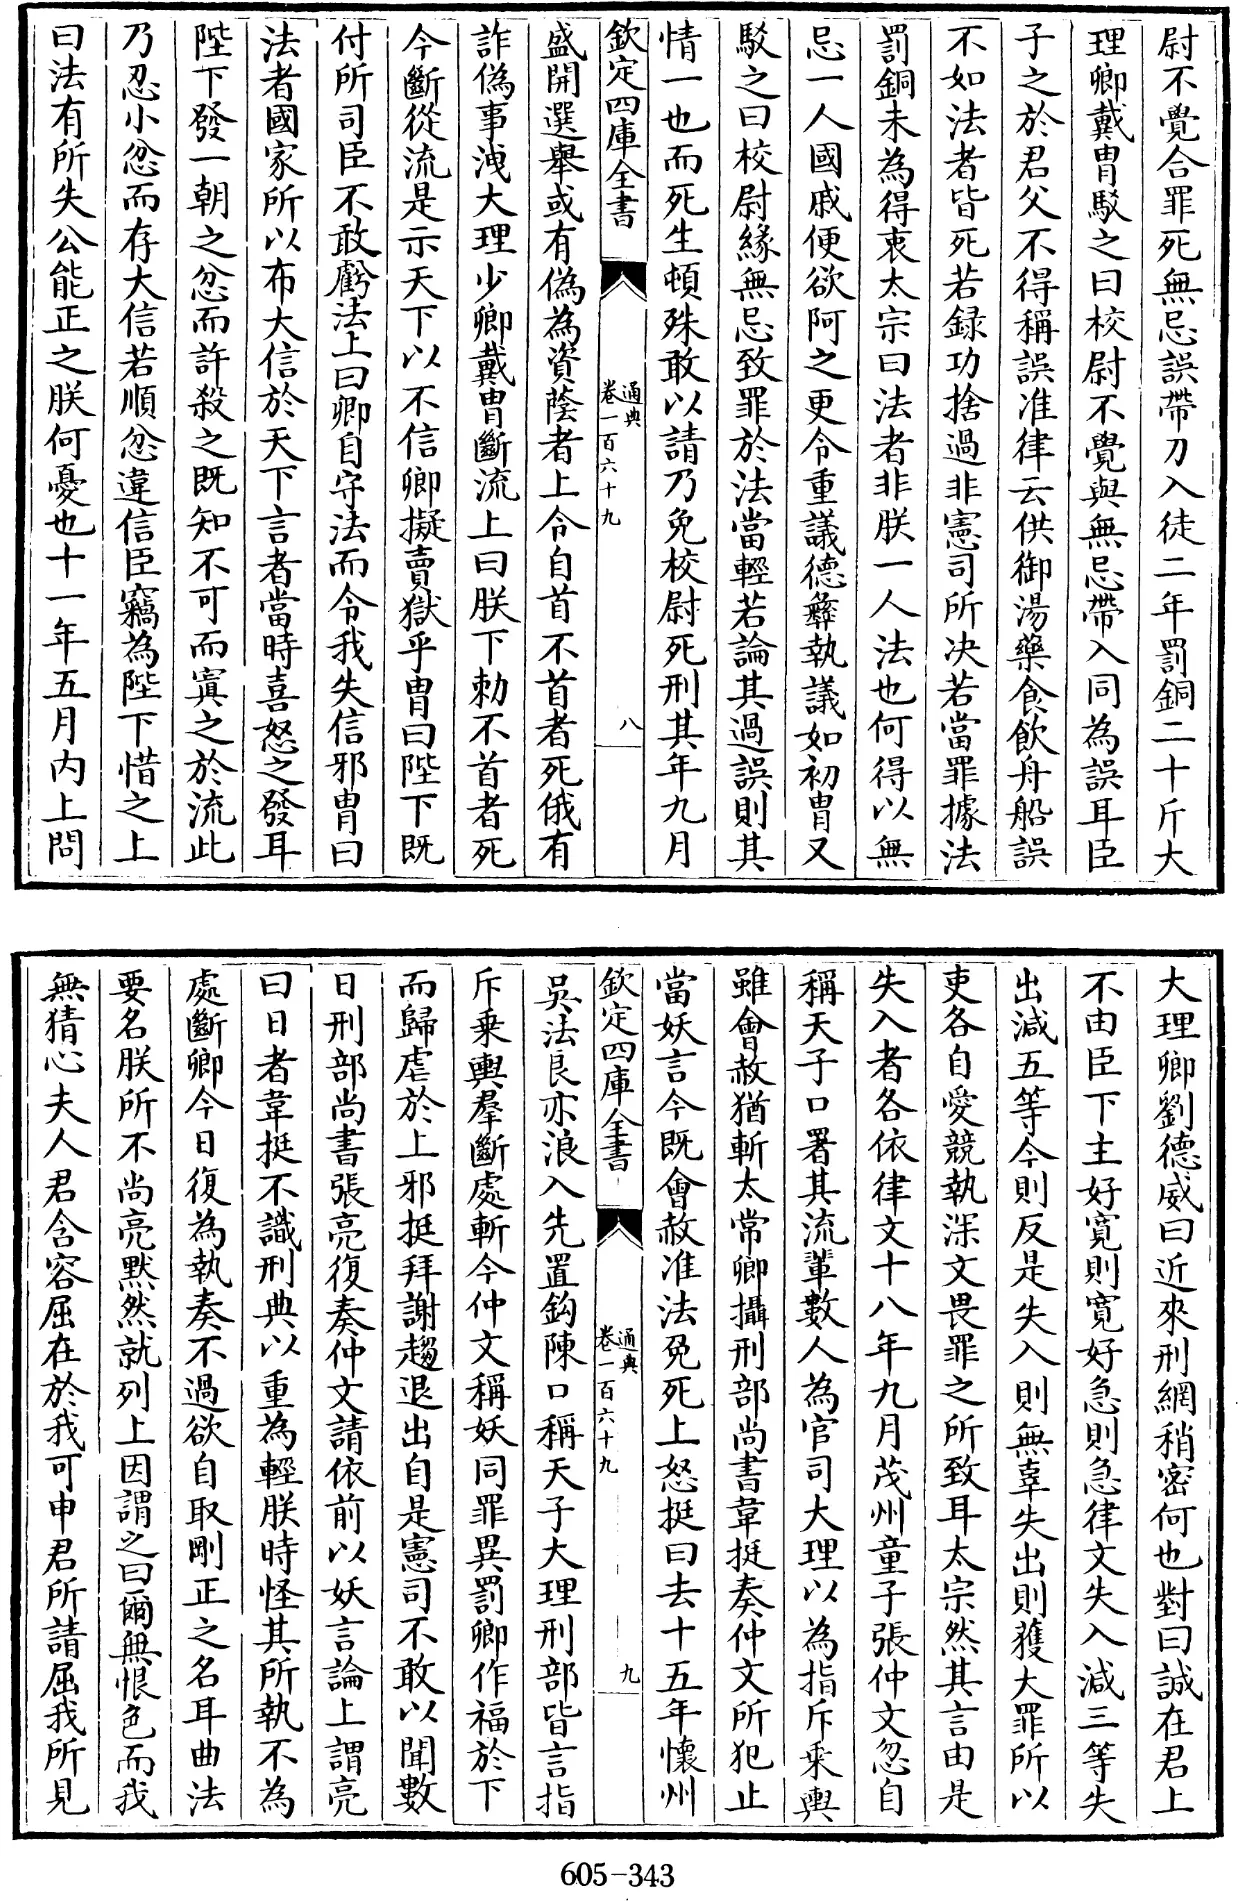 尉不覺合罪死無忌誤帶刀入徒二年罰銅二十斤大
理卿戴胄駁之曰校尉不覺與無忌帶入同為誤耳臣
子之於君父不得稱誤准律云供御湯藥食飲舟船誤
不如法者皆死若録功捨過非憲司所決若當罪據法
罰銅未為得衷太宗曰法者非朕一人法也何得以無
忌一人國戚便欲阿之更令重議德彝執議如初胄又
駁之曰校尉緣無忌致罪於法當輕若論其過誤則其
情一也而死生頓殊敢以請乃免校尉死刑其年九月
欽定四庫全書
通典
卷一百六十九
八
盛開選舉或有偽為資蔭者上令自首不首者死俄有
詐偽事洩大理少卿戴胄斷流上曰朕下勅不首者死
今斷從流是示天下以不信卿擬賣獄乎胄曰陛下既
付所司臣不敢虧法上曰卿自守法而令我失信邪胄曰
法者國家所以布大信於天下言者當時喜怒之發耳
陛下發一朝之忿而許殺之既知不可而寘之於流此
乃忍小忿而存大信若順忿違信臣竊為陛下惜之上
曰法有所失公能正之朕何憂也十一年五月内上問
大理卿劉德威曰近來刑網稍密何也對曰誠在君上
不由臣下主好寛則寛好急則急律文失入減三等失
出減五等今則反是失入則無辜失出則獲大罪所以
吏各自愛競執深文畏罪之所致耳太宗然其言由是
失入者各依律文十八年九月茂州童子張仲文忽自
稱天子口署其流輩數人為官司大理以為指斥乘輿
雖會赦猶斬太常卿攝刑部尚書韋挺奏仲文所犯止
當妖言今既會赦准法免死上怒挺曰去十五年懷州
欽定四庫全書
通典
卷一百六十九
九
吳法良亦浪入先置鈎陳口稱天子大理刑部皆言指
斥乘輿羣斷處斬今仲文稱妖同罪異罰卿作福於下
而歸虐於上邪挺拜謝趨退出自是憲司不敢以聞數
日刑部尚書張亮復奏仲文請依前以妖言論上謂亮
曰日者韋挺不識刑典以重為輕朕時怪其所執不為
處斷卿今日復為執奏不過欲自取剛正之名耳曲法
要名朕所不尚亮黙然就列上因謂之曰爾無恨色而我
無猜心夫人君含容屈在於我可申君所請屈我所見
605-343